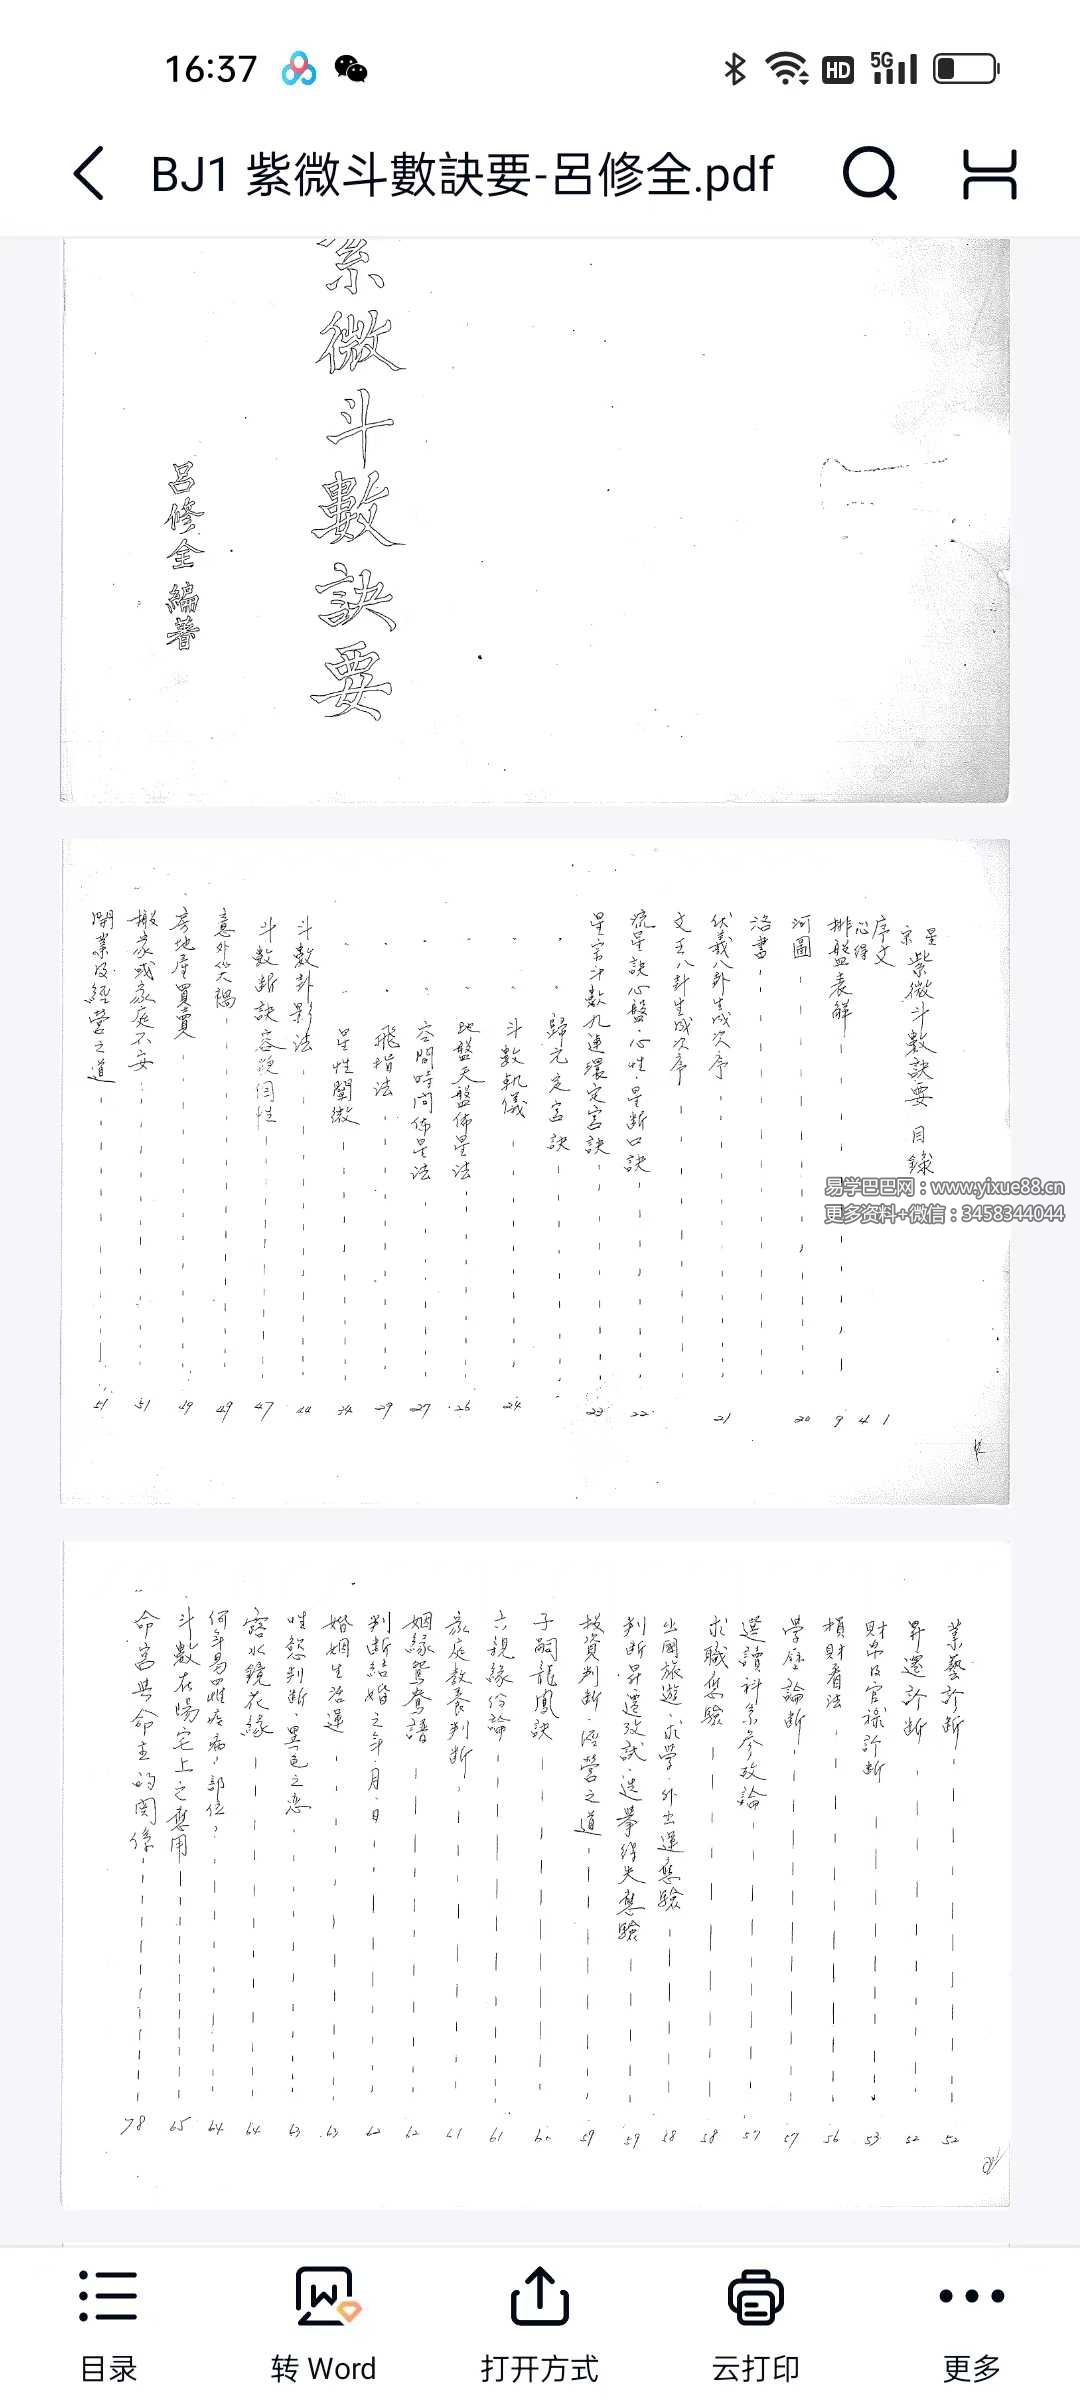 16:37
HD
5G
BJ1 紫微斗數訣要-呂修全.pdf
紫微斗數訣要
呂修全編著
星宗紫微斗數訣要 目錄
序文 1
心得 4
排盤表解 9
河圖 20
洛書
伏羲八卦生成次序 21
文王八卦生成次序
流星訣心盤·心性·星断口訣 22
星宗斗數九連環定宮訣 23
歸元定宮訣
斗數軌儀 24
地盤天盤佈星法 26
空間時間佈星法 27
飛指法 29
星性闡微 34
斗數卦影法 44
斗數断訣容貌個性 47
意外災禍 49
房地產買賣 49
搬家或家庭不安 51
開業及經營之道 51
易学巴巴网：www.yixue88.cn
更多资料+微信：3458344044
業藝診断 52
昇遷診断 52
財帛及官祿診断 53
損財看法 56
學歷論断 57
選讀科系參攷論 57
求職應驗 58
出國旅遊·求學·外出運應驗 58
判断昇遷攷試·选舉得失應驗 59
投資判断·經營之道 59
子嗣龍鳳訣 60
六親緣份論 61
家庭教養判断 61
姻緣鴛鴦譜 62
判断結婚之年月·日 62
婚姻生活運 63
性慾判断·異色之恋 63
露水鏡花緣 64
何年易罹疾病·部位? 64
斗數在陽宅上之應用 65
命宮與命主的関係 78
目录
转 Word
打开方式
云打印
更多